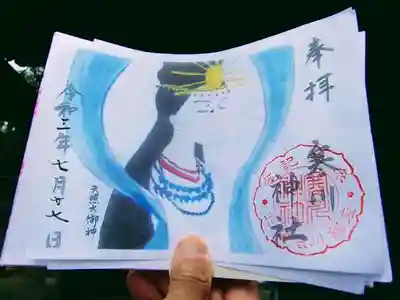 奉拝
寒川
神社
天照大御神
令和二年七月廿七日